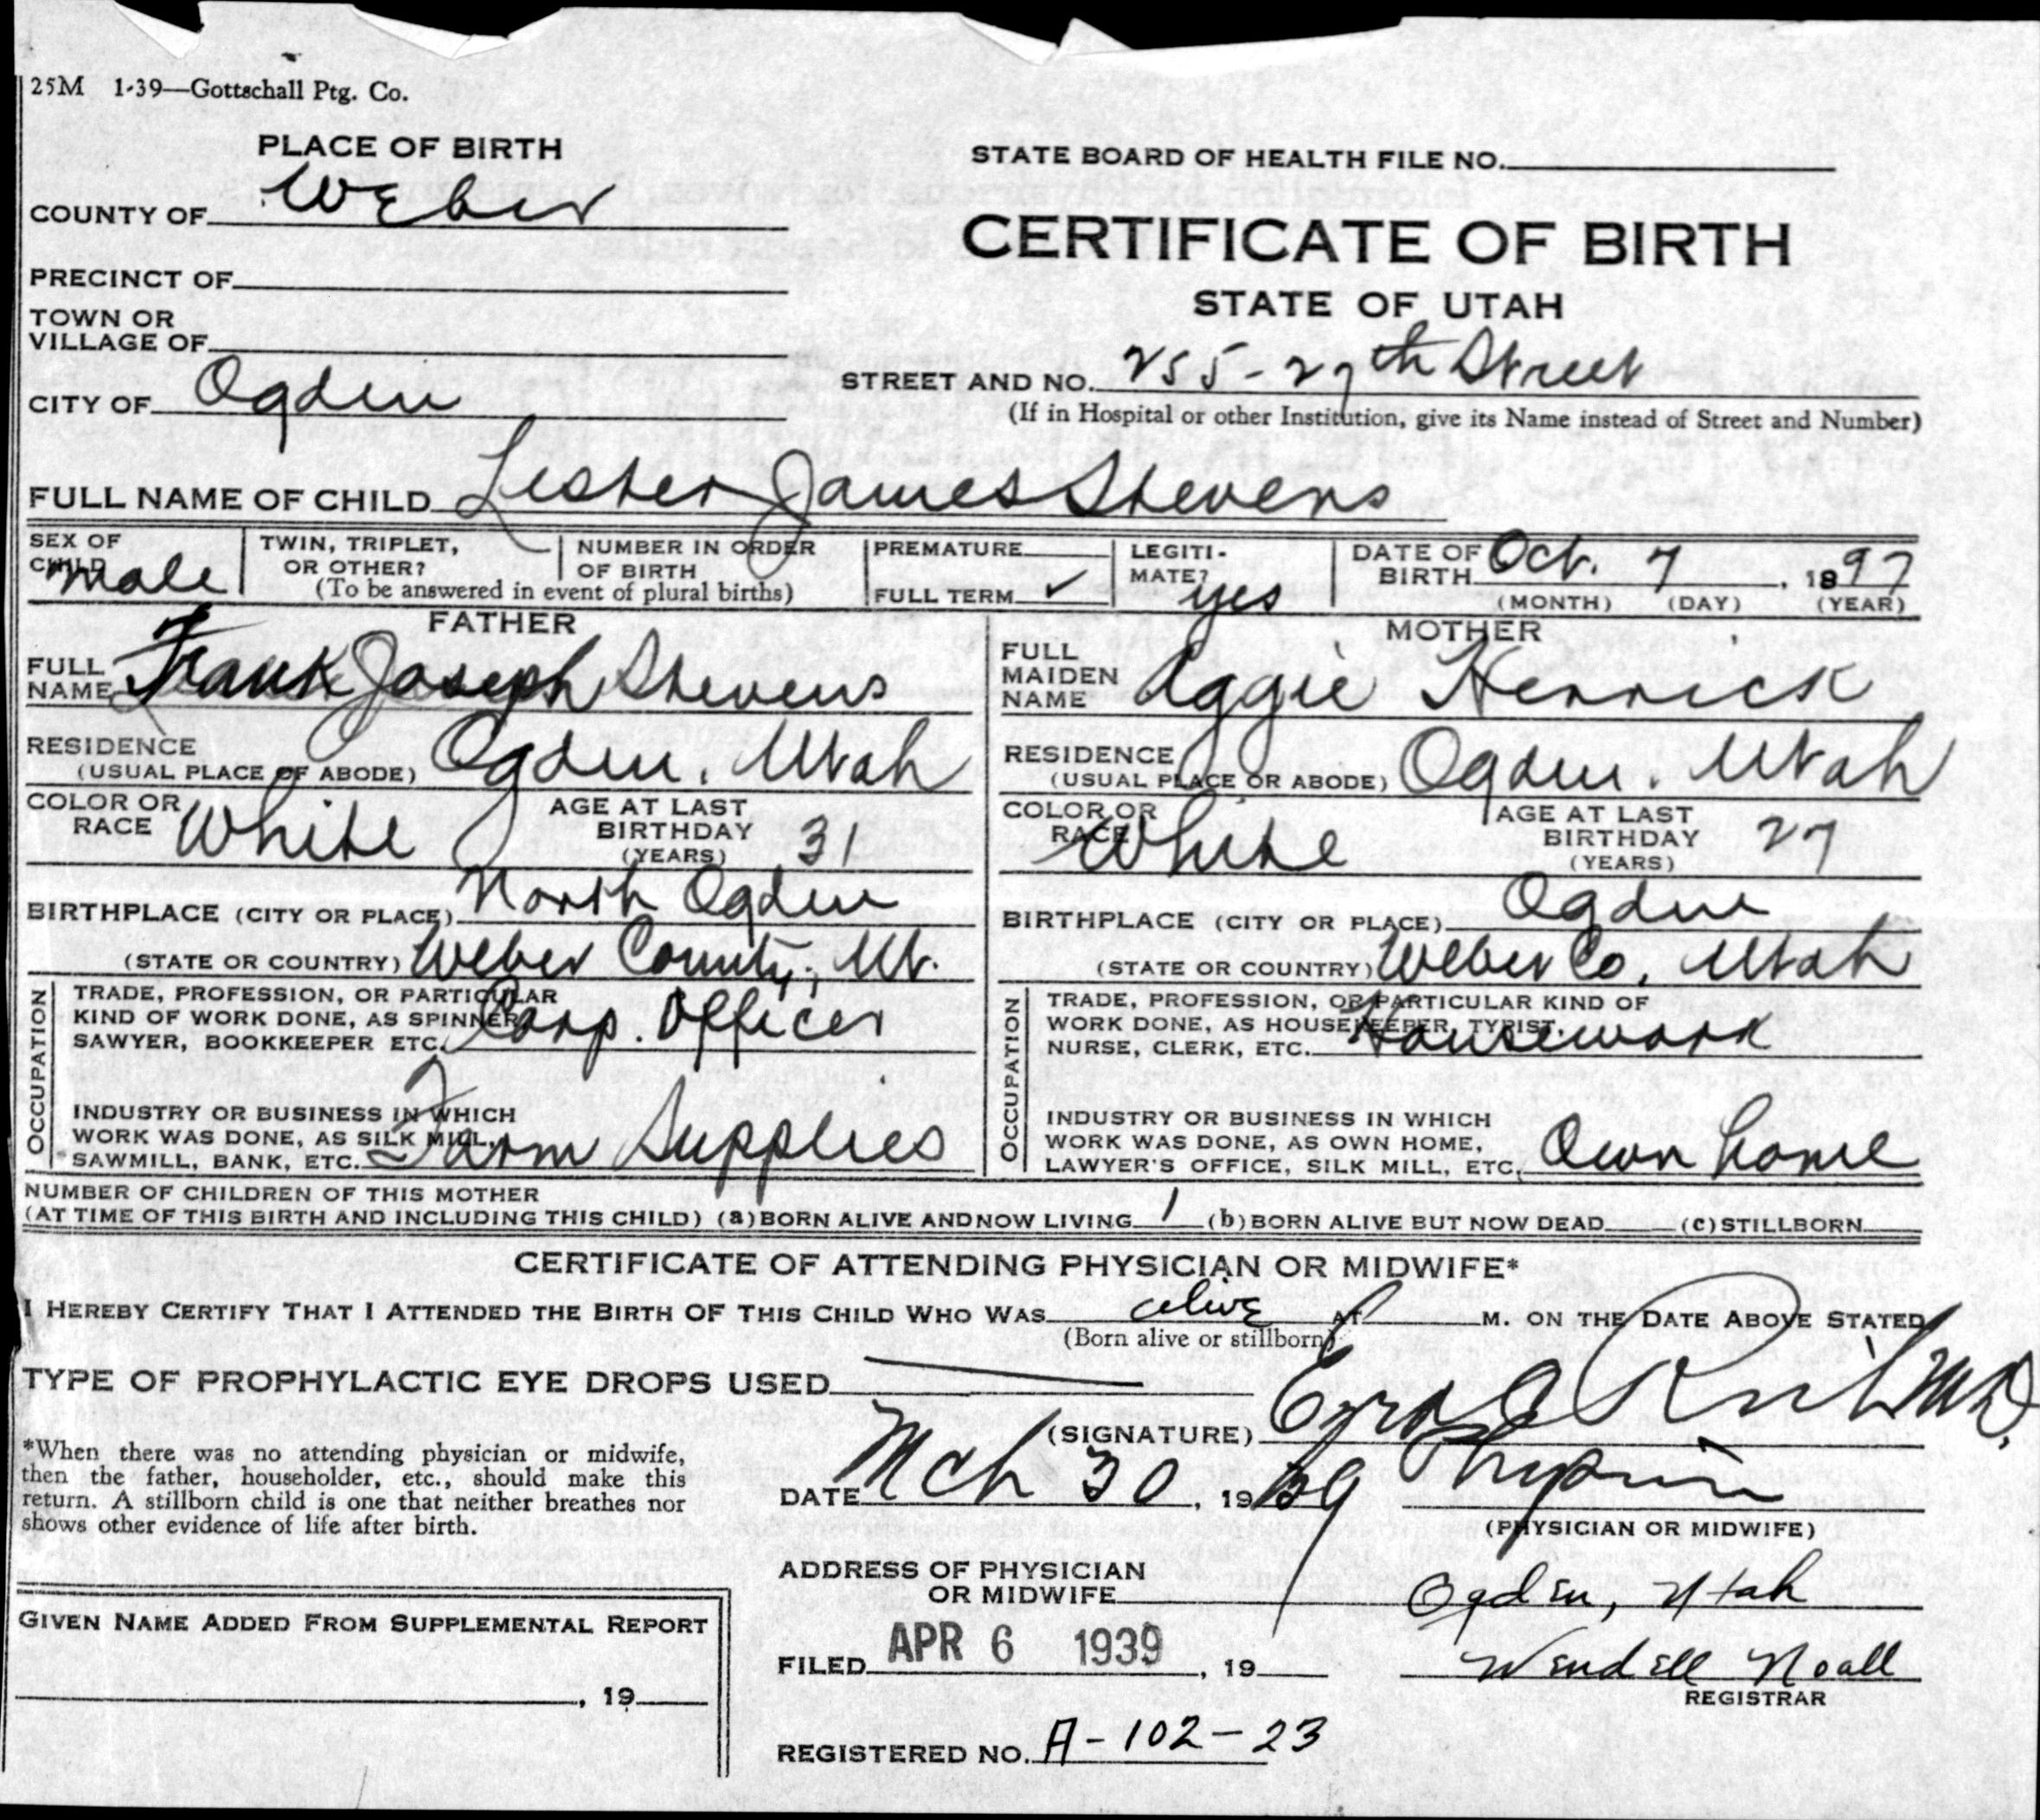 25M 1-39—Gottschall Ptg. Co.
PLACE OF BIRTH
STATE BOARD OF HEALTH FILE NO.
COUNTY OF Weber
CERTIFICATE OF BIRTH
PRECINCT OF
STATE OF UTAH
TOWN OR
VILLAGE OF
STREET AND NO. 255 - 27th Street
(If in Hospital or other Institution, give its Name instead of Street and Number)
CITY OF Ogden
FULL NAME OF CHILD Lester James Stevens
SEX OF CHILD male
TWIN, TRIPLET, OR OTHER?
NUMBER IN ORDER OF BIRTH
(To be answered in event of plural births)
PREMATURE
FULL TERM ✓
LEGITI-
MATE? yes
DATE OF BIRTH Oct. 7, 1897
(MONTH) (DAY) (YEAR)
FATHER
FULL NAME Frank Joseph Stevens
RESIDENCE
(USUAL PLACE OF ABODE) Ogden, Utah
COLOR OR RACE White
AGE AT LAST BIRTHDAY (YEARS) 31
BIRTHPLACE (CITY OR PLACE) North Ogden
(STATE OR COUNTRY) Weber County, Ut.
OCCUPATION
TRADE, PROFESSION, OR PARTICULAR
KIND OF WORK DONE, AS SPINNER,
SAWYER, BOOKKEEPER ETC. Corp. Officer
INDUSTRY OR BUSINESS IN WHICH
WORK WAS DONE, AS SILK MILL,
SAWMILL, BANK, ETC. Farm Supplies
MOTHER
FULL MAIDEN NAME Aggie Herrick
RESIDENCE
(USUAL PLACE OR ABODE) Ogden, Utah
COLOR OR RACE White
AGE AT LAST BIRTHDAY (YEARS) 27
BIRTHPLACE (CITY OR PLACE) Ogden
(STATE OR COUNTRY) Weber Co, Utah
OCCUPATION
TRADE, PROFESSION, OR PARTICULAR KIND OF
WORK DONE, AS HOUSEKEEPER, TYPIST,
NURSE, CLERK, ETC. Housework
INDUSTRY OR BUSINESS IN WHICH
WORK WAS DONE, AS OWN HOME,
LAWYER'S OFFICE, SILK MILL, ETC. Own home
NUMBER OF CHILDREN OF THIS MOTHER
(AT TIME OF THIS BIRTH AND INCLUDING THIS CHILD) (a) BORN ALIVE AND NOW LIVING 1 (b) BORN ALIVE BUT NOW DEAD (c) STILLBORN
CERTIFICATE OF ATTENDING PHYSICIAN OR MIDWIFE*
I HEREBY CERTIFY THAT I ATTENDED THE BIRTH OF THIS CHILD WHO WAS alive AT M. ON THE DATE ABOVE STATED
(Born alive or stillborn)
TYPE OF PROPHYLACTIC EYE DROPS USED
(SIGNATURE) Ezra C Rich M.D.
*When there was no attending physician or midwife,
then the father, householder, etc., should make this
return. A stillborn child is one that neither breathes nor
shows other evidence of life after birth.
DATE Mch 30, 1939
(PHYSICIAN OR MIDWIFE)
ADDRESS OF PHYSICIAN
OR MIDWIFE Ogden, Utah
GIVEN NAME ADDED FROM SUPPLEMENTAL REPORT
, 19
FILED APR 6 1939, 19
Wendell Noall
REGISTRAR
REGISTERED NO. A-102-23